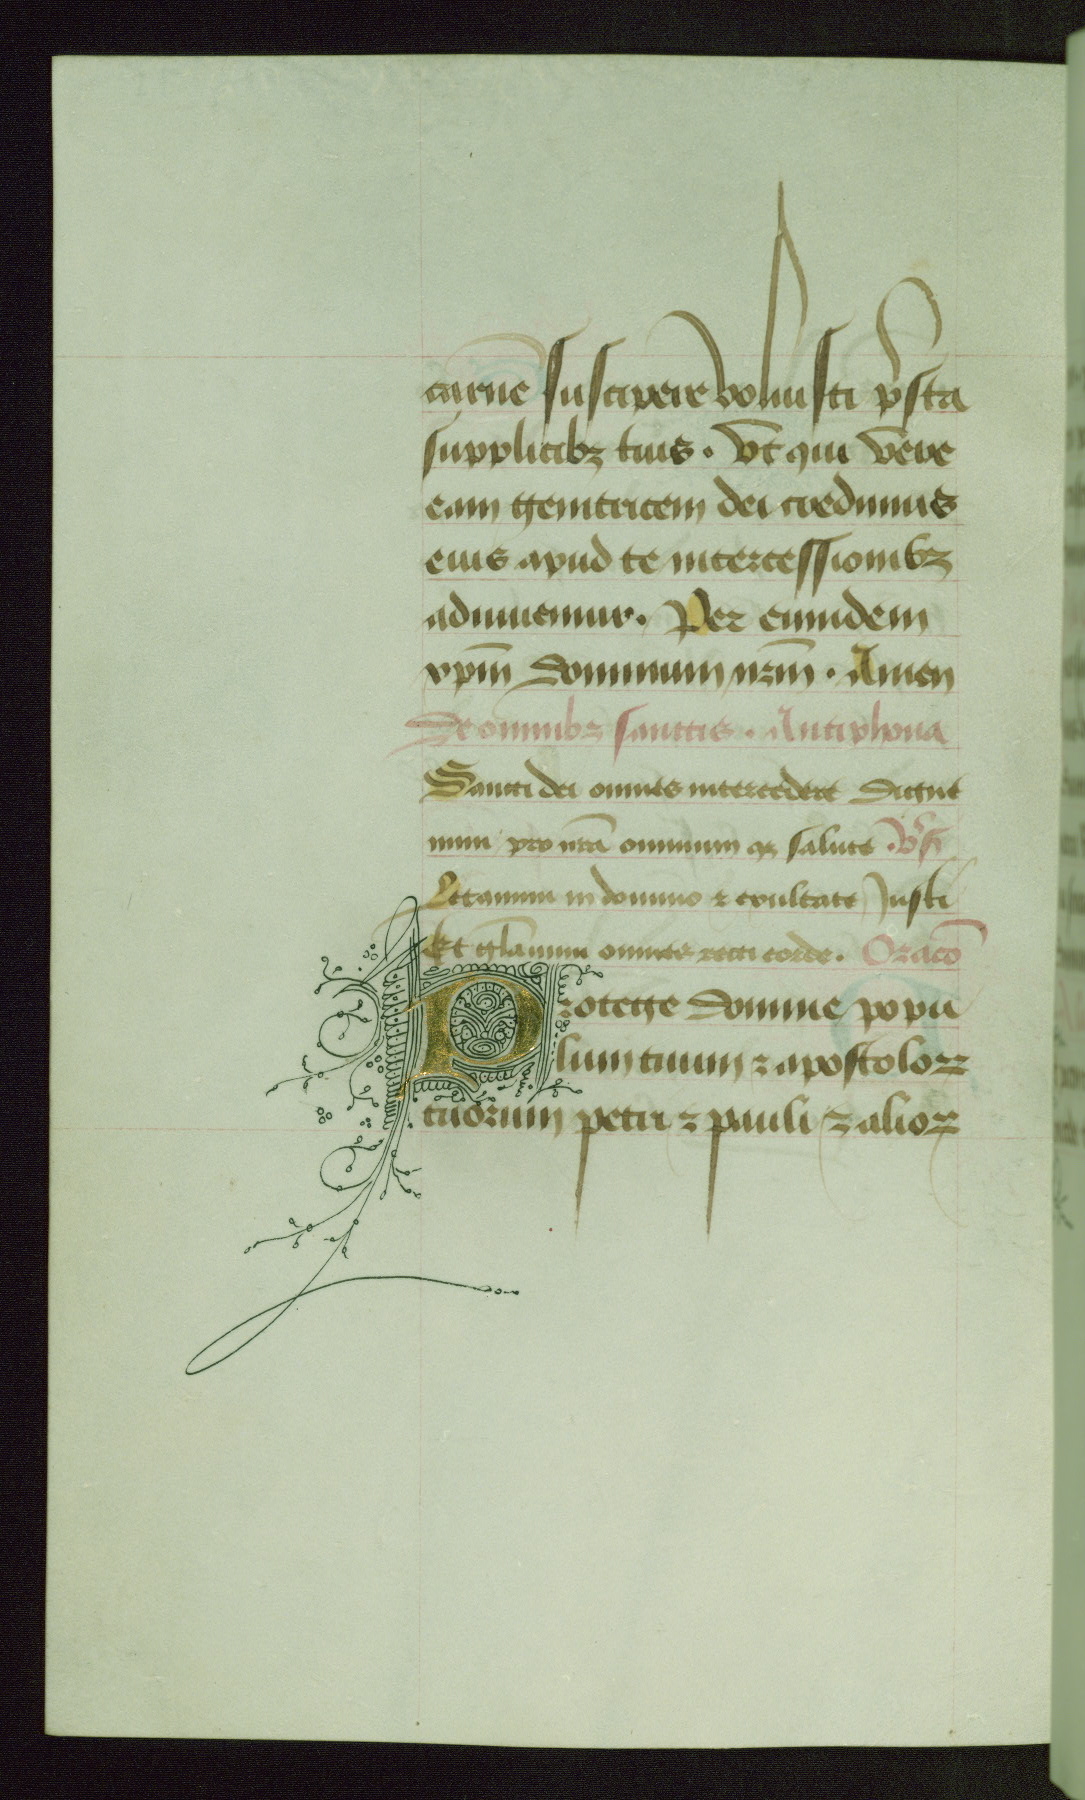 carnē suscipere voluisti p̄sta
supplicibꝫ tuis . Vt qui vere
eam genitricem dei credimus
eius apud te intercessionibꝫ
adiuuemur . Per eiundem
xp̄m dominum nr̄m . Amen
De omnibꝫ sanctis . Antiphona
Sancti dei omnes intercedere dignē
mini pro nr̄a omnium qꝫ salute . v̊si
Letamini in domino ⁊ exultate Justi
Et gl̄amini omnes recti corde . Oracō
Protege domine popu
lum tuum ⁊ apostoloꝝ
tuorum petri ⁊ pauli ⁊ alioꝝ